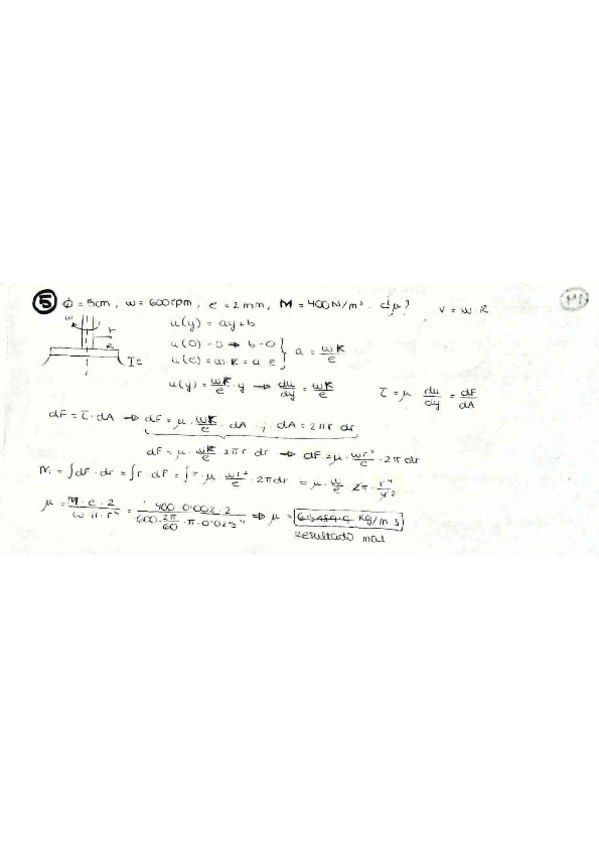 5 Φ = 5cm, w = 600rpm, e = 2mm, M = 400N/m². ¿μ?
v = w R
w r R e
u(y) = ay+b
u(0) = 0 → b = 0
u(e) = w R = a e } a = wR/e
u(y) = wR/e · y → du/dy = wR/e
τ = μ du/dy = dF/dA
dF = τ · dA → dF = μ · wR/e · dA ; dA = 2πr dr
dF = μ · wR/e 2πr dr → dF = μ · wr²/e · 2π dr
M = ∫dF · dr = ∫r · dF = ∫r · μ wr²/e · 2πdr = μ · w/e 2π · r⁴/4 2
μ = M · e · 2 / w · π · r⁴ = 400 · 0'002 · 2 / (600) · 2π/60 · π · 0'025⁴ ⇒ μ = kg/m s
resultado mal